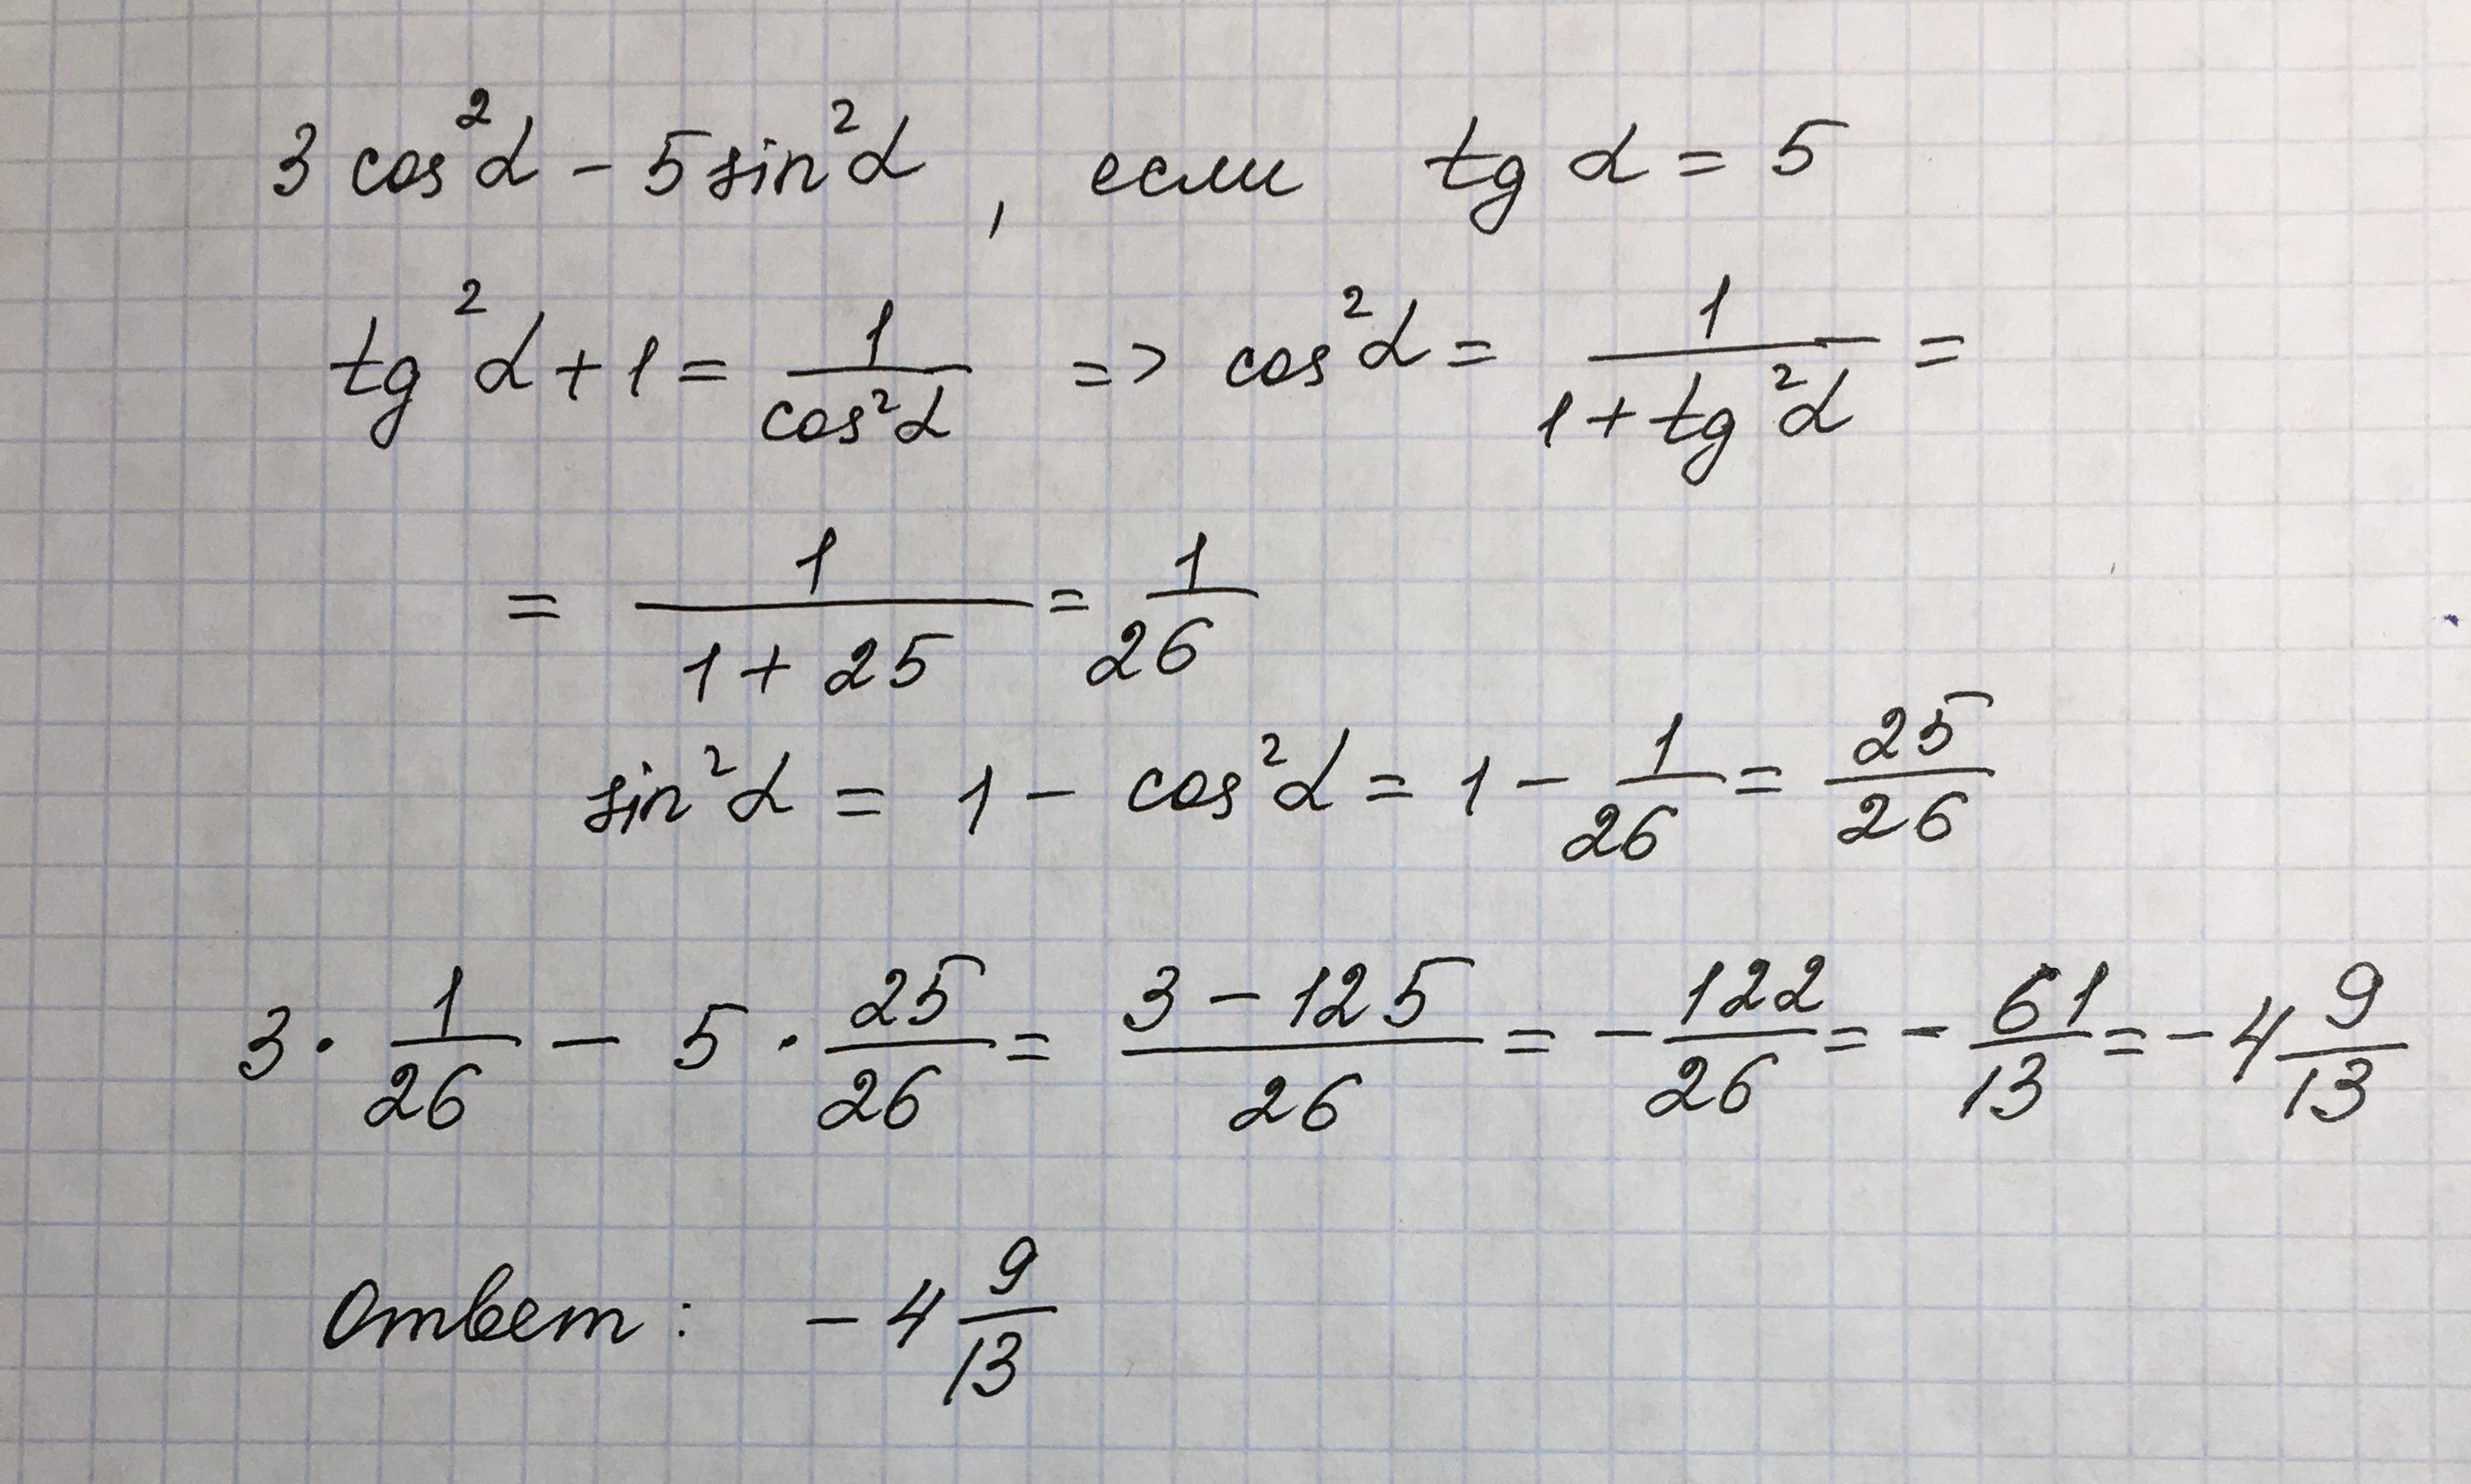 3 cos²α - 5 sin²α, если tg α = 5
tg²α + 1 = 1/cos²α => cos²α = 1/(1 + tg²α) =
= 1/(1 + 25) = 1/26
sin²α = 1 - cos²α = 1 - 1/26 = 25/26
3 · 1/26 - 5 · 25/26 = (3 - 125)/26 = - 122/26 = - 61/13 = - 4 9/13
Ответ: - 4 9/13